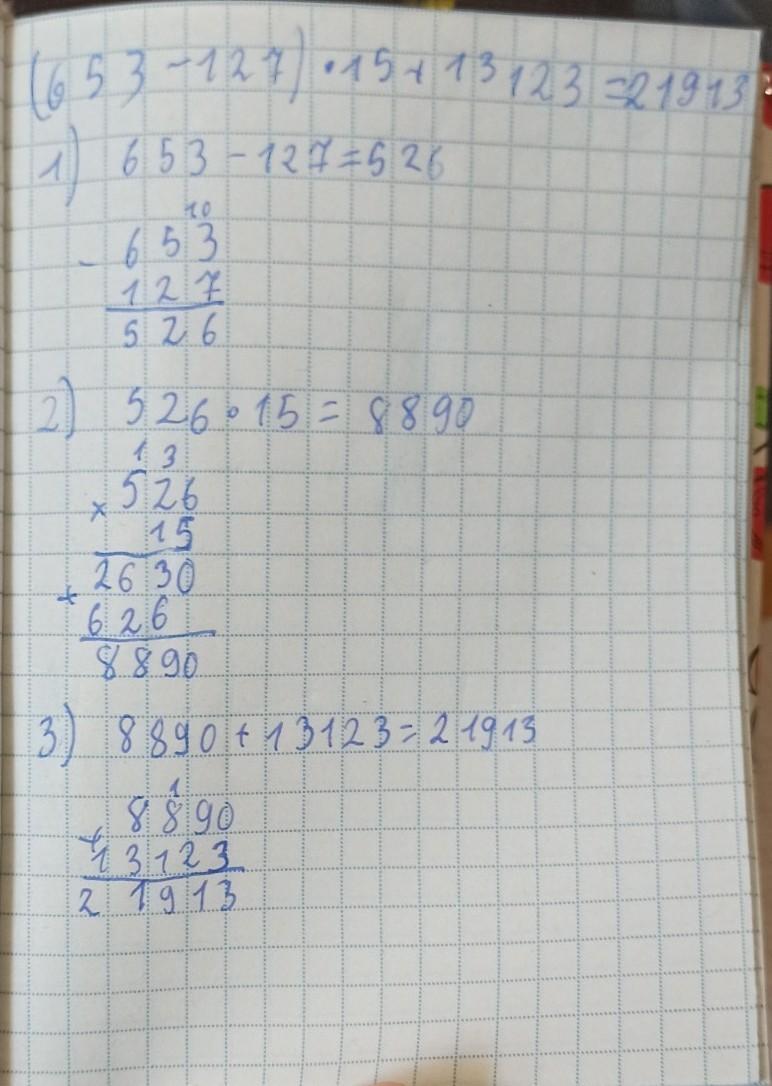 (653-127)·15+13123=21913
1) 653-127=526
10
- 653
127
526
2) 526·15=8890
1 3
× 526
15
2630
+ 626
8890
3) 8890+13123=21913
1
+ 8890
13123
21913